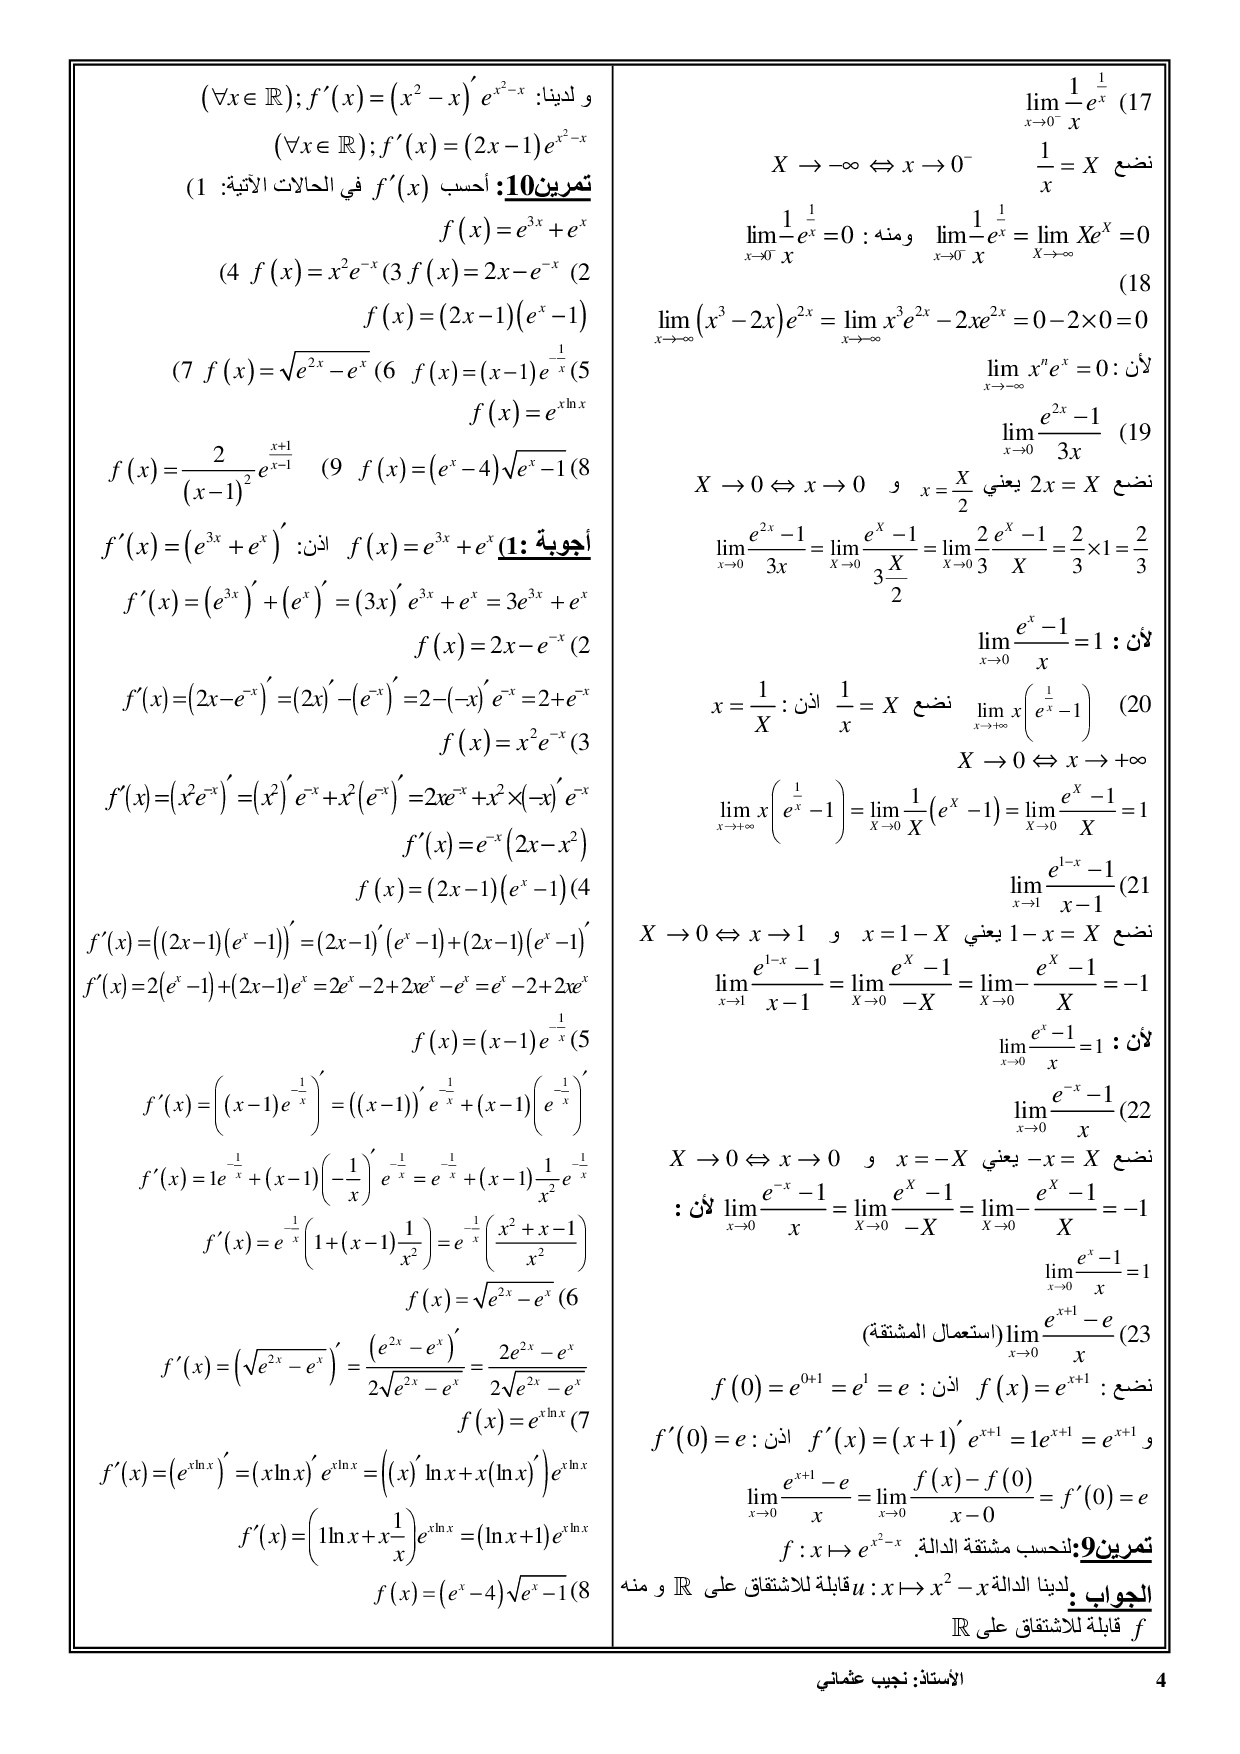 17) lim_{x→0⁻} (1/x) e^{1/x}
نضع 1/x = X   X → −∞ ⇔ x → 0⁻
lim_{x→0⁻} (1/x) e^{1/x} = lim_{X→−∞} Xe^X = 0 ومنه : lim_{x→0⁻} (1/x) e^{1/x} = 0
18)
lim_{x→−∞} (x³ − 2x) e^{2x} = lim_{x→−∞} x³e^{2x} − 2xe^{2x} = 0 − 2×0 = 0
لأن : lim_{x→−∞} xⁿe^x = 0
19) lim_{x→0} (e^{2x} − 1)/(3x)
نضع 2x = X يعني x = X/2 و X → 0 ⇔ x → 0
lim_{x→0} (e^{2x} − 1)/(3x) = lim_{X→0} (e^X − 1)/(3 X/2) = lim_{X→0} (2/3) (e^X − 1)/X = (2/3) × 1 = 2/3
لأن : lim_{x→0} (e^x − 1)/x = 1
20) lim_{x→+∞} x(e^{1/x} − 1) نضع 1/x = X اذن : x = 1/X
X → 0 ⇔ x → +∞
lim_{x→+∞} x(e^{1/x} − 1) = lim_{X→0} (1/X)(e^X − 1) = lim_{X→0} (e^X − 1)/X = 1
21) lim_{x→1} (e^{1−x} − 1)/(x − 1)
نضع 1 − x = X يعني x = 1 − X و X → 0 ⇔ x → 1
lim_{x→1} (e^{1−x} − 1)/(x − 1) = lim_{X→0} (e^X − 1)/(−X) = lim_{X→0} − (e^X − 1)/X = −1
لأن : lim_{x→0} (e^x − 1)/x = 1
22) lim_{x→0} (e^{−x} − 1)/x
نضع −x = X يعني x = −X و X → 0 ⇔ x → 0
lim_{x→0} (e^{−x} − 1)/x = lim_{X→0} (e^X − 1)/(−X) = lim_{X→0} − (e^X − 1)/X = −1 لأن :
lim_{x→0} (e^x − 1)/x = 1
23) lim_{x→0} (e^{x+1} − e)/x (استعمال المشتقة)
نضع : f(x) = e^{x+1} اذن : f(0) = e^{0+1} = e¹ = e
و f′(x) = (x + 1)′ e^{x+1} = 1e^{x+1} = e^{x+1} اذن : f′(0) = e
lim_{x→0} (e^{x+1} − e)/x = lim_{x→0} (f(x) − f(0))/(x − 0) = f′(0) = e
تمرين9:لنحسب مشتقة الدالة. f : x ↦ e^{x²−x}
الجواب :لدينا الدالة u : x ↦ x² − x قابلة للاشتقاق على ℝ و منه
f قابلة للاشتقاق على ℝ
و لدينا: (∀x ∈ ℝ); f′(x) = (x² − x)′ e^{x²−x}
(∀x ∈ ℝ); f′(x) = (2x − 1) e^{x²−x}
تمرين10: أحسب f′(x) في الحالات الآتية: 1)
f(x) = e^{3x} + e^x
2) f(x) = 2x − e^{−x} 3) f(x) = x²e^{−x} 4)
f(x) = (2x − 1)(e^x − 1)
5) f(x) = (x − 1) e^{−1/x} 6) f(x) = √(e^{2x} − e^x) 7)
f(x) = e^{x ln x}
8) f(x) = (e^x − 4)√(e^x − 1) 9) f(x) = 2/(x − 1)² e^{(x+1)/(x−1)}
أجوبة :1) f(x) = e^{3x} + e^x اذن: f′(x) = (e^{3x} + e^x)′
f′(x) = (e^{3x})′ + (e^x)′ = (3x)′ e^{3x} + e^x = 3e^{3x} + e^x
2) f(x) = 2x − e^{−x}
f′(x) = (2x − e^{−x})′ = (2x)′ − (e^{−x})′ = 2 − (−x)′ e^{−x} = 2 + e^{−x}
3) f(x) = x²e^{−x}
f′(x) = (x²e^{−x})′ = (x²)′ e^{−x} + x²(e^{−x})′ = 2xe^{−x} + x² × (−x)′ e^{−x}
f′(x) = e^{−x}(2x − x²)
4) f(x) = (2x − 1)(e^x − 1)
f′(x) = ((2x − 1)(e^x − 1))′ = (2x − 1)′ (e^x − 1) + (2x − 1)(e^x − 1)′
f′(x) = 2(e^x − 1) + (2x − 1)e^x = 2e^x − 2 + 2xe^x − e^x = e^x − 2 + 2xe^x
5) f(x) = (x − 1) e^{−1/x}
f′(x) = ((x − 1) e^{−1/x})′ = ((x − 1))′ e^{−1/x} + (x − 1)(e^{−1/x})′
f′(x) = 1e^{−1/x} + (x − 1)(−1/x)′ e^{−1/x} = e^{−1/x} + (x − 1)(1/x²) e^{−1/x}
f′(x) = e^{−1/x}(1 + (x − 1)(1/x²)) = e^{−1/x}((x² + x − 1)/x²)
6) f(x) = √(e^{2x} − e^x)
f′(x) = (√(e^{2x} − e^x))′ = (e^{2x} − e^x)′/(2√(e^{2x} − e^x)) = (2e^{2x} − e^x)/(2√(e^{2x} − e^x))
7) f(x) = e^{x ln x}
f′(x) = (e^{x ln x})′ = (x ln x)′ e^{x ln x} = ((x)′ ln x + x(ln x)′) e^{x ln x}
f′(x) = (1 ln x + x (1/x)) e^{x ln x} = (ln x + 1) e^{x ln x}
8) f(x) = (e^x − 4)√(e^x − 1)
4 الأستاذ: نجيب عثماني